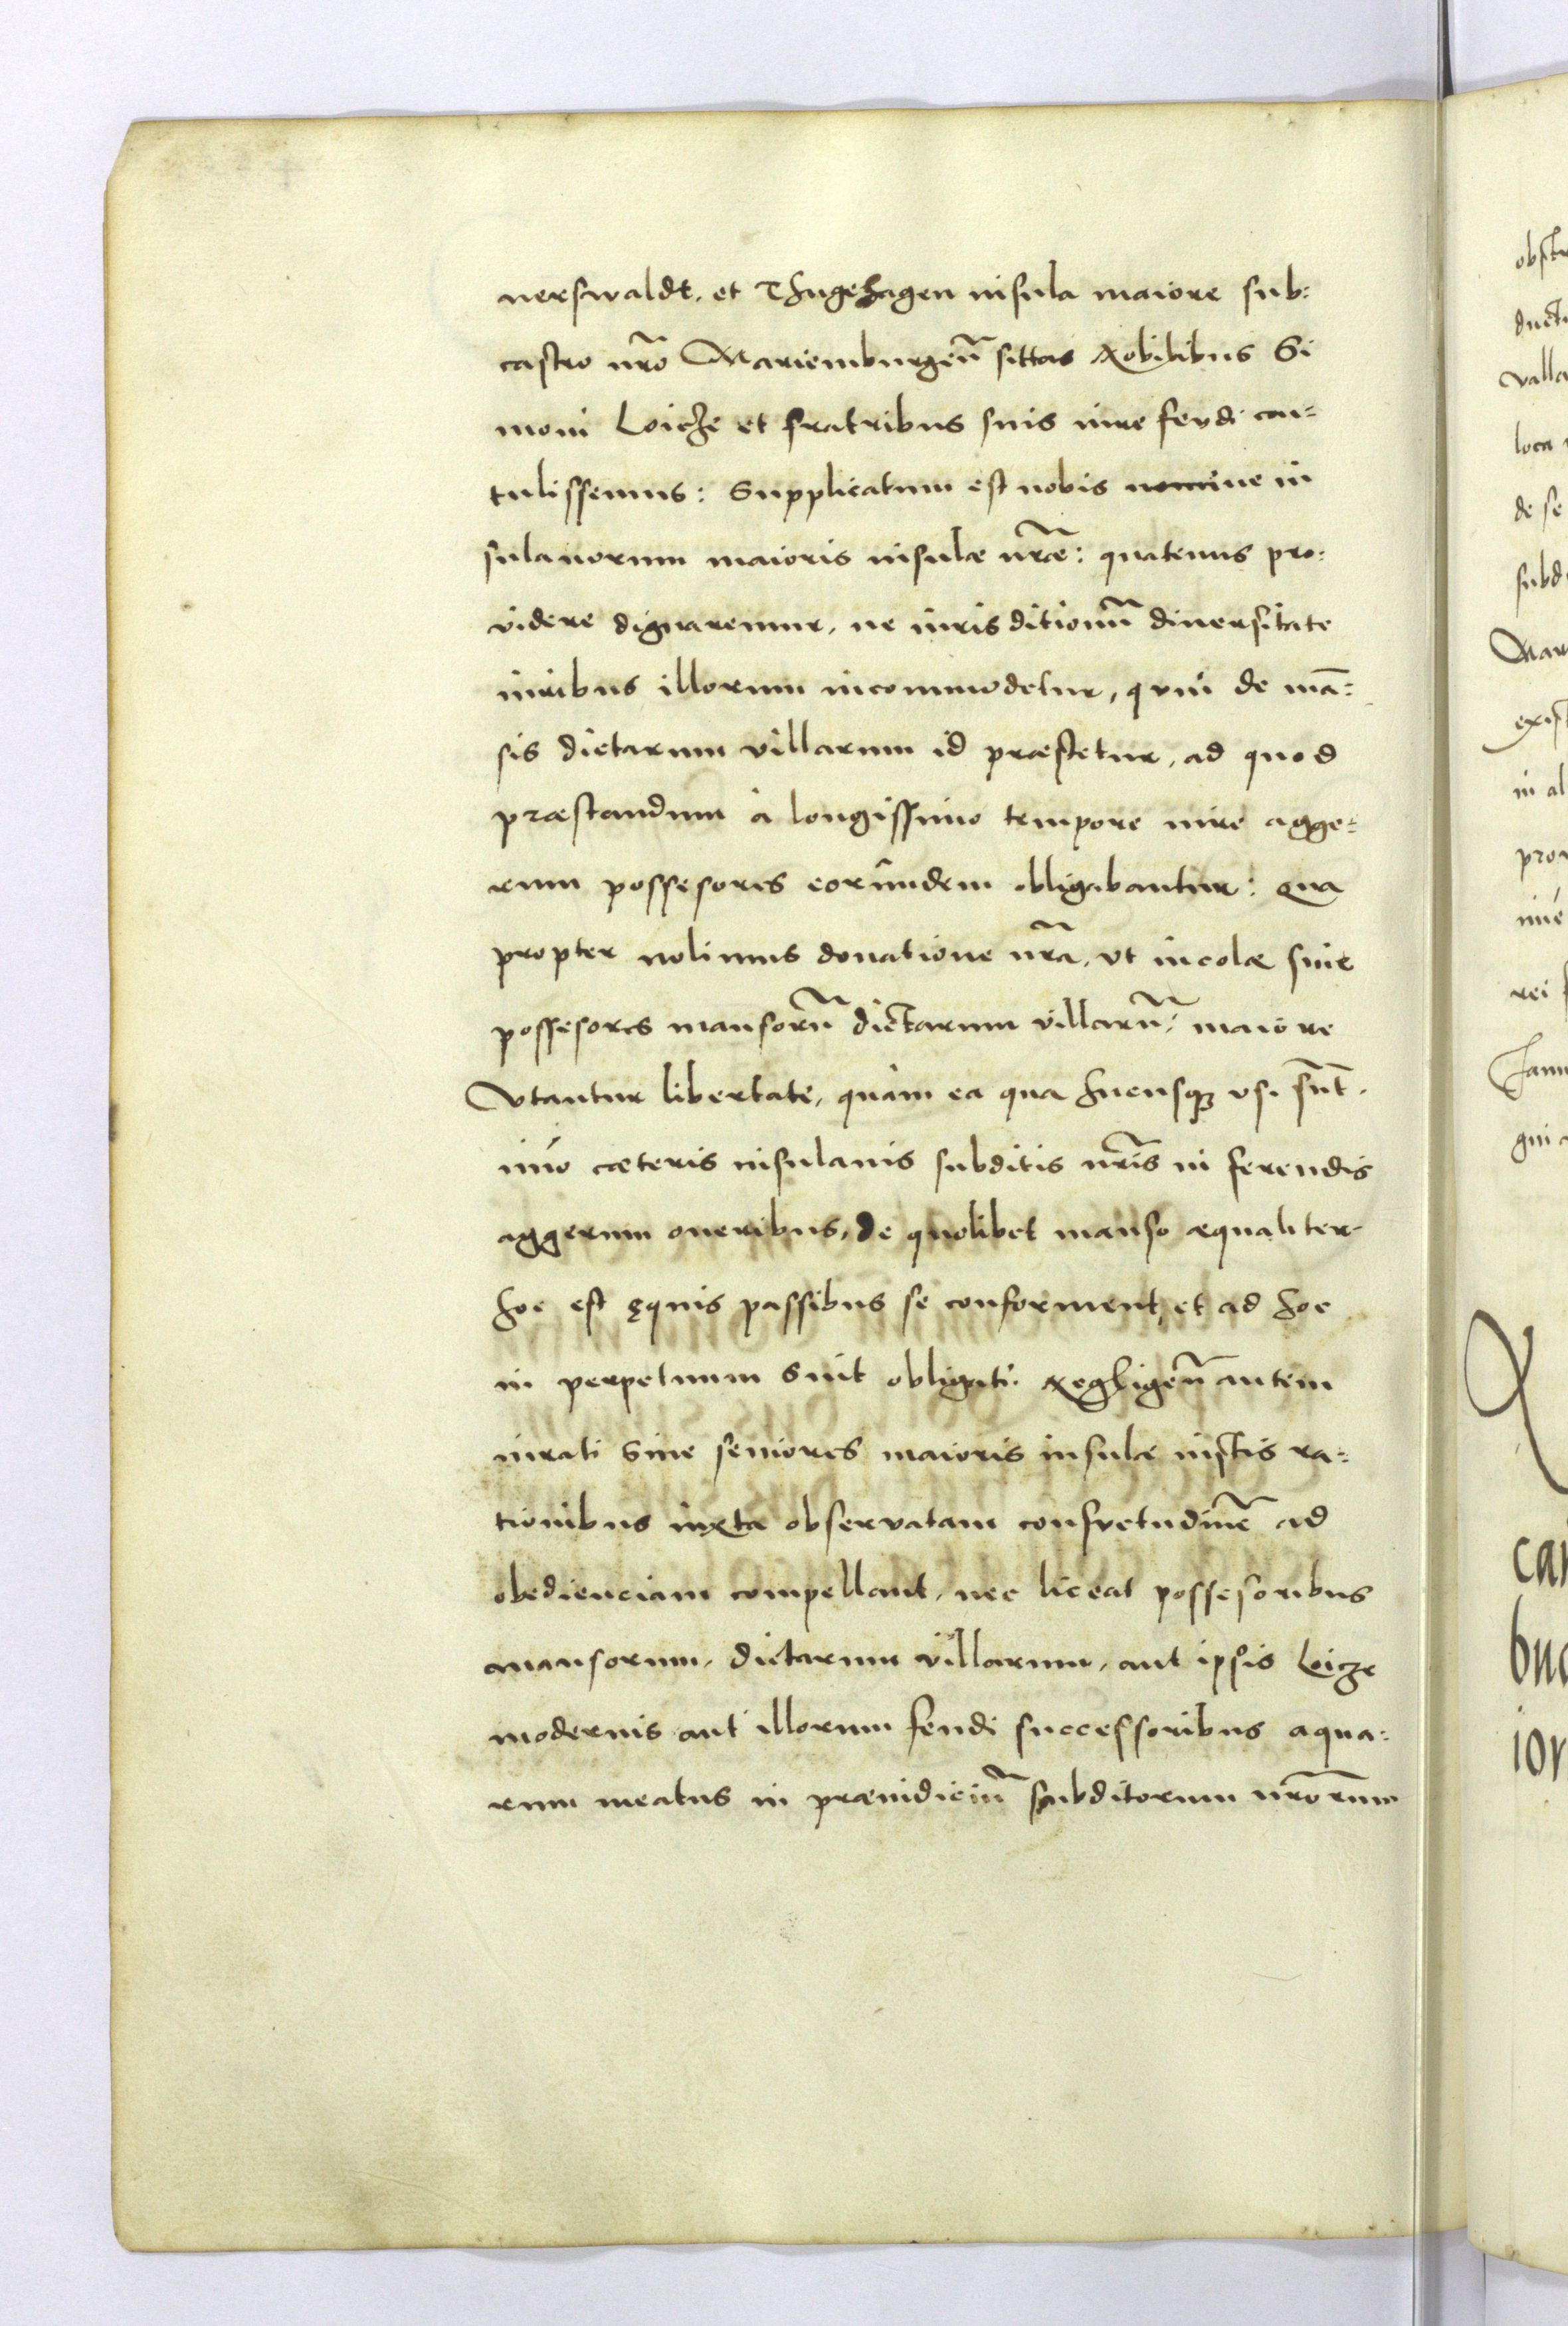 nerswaldt, et Thugehagen insula maiore sub:
castro nr̃o Mariemburgeñ sittas Nobilibus Si
moni Loicze et fratribus suis iure feudi con=
tulissemus: Supplicatum est nobis nomine in
sulanorum maioris insulæ nr̃æ: quatenus pro:
videre dignaremur, ne iurisditionũ diuersitate
iuribus illorum incommodetur, quin de mã:
sis dictarum villarum id præstetur, ad quod
præstandum à longissimo tempore iure agge:
rum possesores eorundem obligabantur: Qua
propter nolimus donatione nr̃a, vt incolæ siue
possesores mansorũ dictarum villarũ, maiore
vtantur libertate, quàm ea qua hucusqꝫ vsi sũt.
imò cæteris insulanis subditis nr̃is in ferendis
aggerum oneribus, de quolibet manso æqualiter
hoc est ęquis passibus se conforment, et ad hoc
in perpetuum sint obligati. Negligeñ autem
iurati siue seniores maioris insulæ iustis ra=
tionibus iuxta obseruatam consvetudinẽ ad
obedienciam compellant, nec liceat possesoribus
mansorum, dictarum villarum, aut ipsis Loicze
modernis aut illorum feudi successoribus aqua:
rum meatus in præiudiciũ subditorum nr̃orum
obst
duct
valla
loca
de se
subd
Mar
exist
in al
pro
iiué
rei
Janu
gni
car
buc
ior